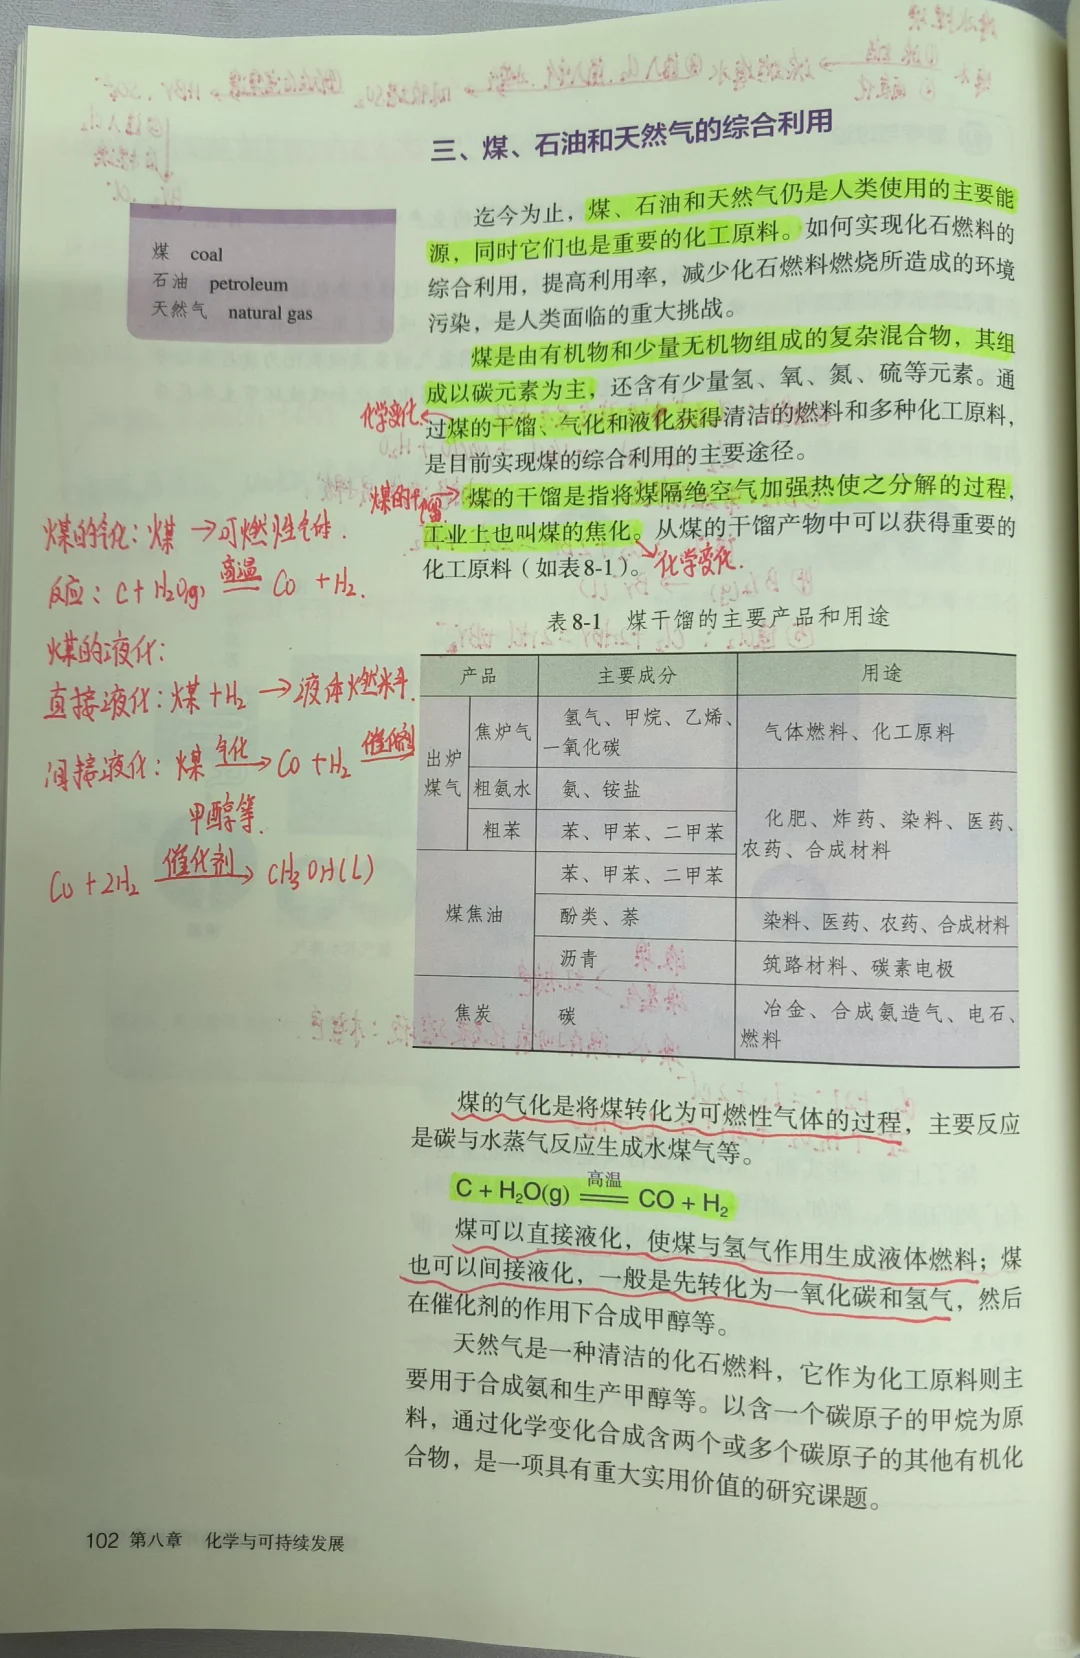 三、煤、石油和天然气的综合利用
煤 coal
石油 petroleum
天然气 natural gas
迄今为止，煤、石油和天然气仍是人类使用的主要能
源，同时它们也是重要的化工原料。如何实现化石燃料的
综合利用，提高利用率，减少化石燃料燃烧所造成的环境
污染，是人类面临的重大挑战。
煤是由有机物和少量无机物组成的复杂混合物，其组
成以碳元素为主，还含有少量氢、氧、氮、硫等元素。通
过煤的干馏、气化和液化获得清洁的燃料和多种化工原料，
是目前实现煤的综合利用的主要途径。
化学变化
煤的干馏
煤的干馏是指将煤隔绝空气加强热使之分解的过程，
工业上也叫煤的焦化。从煤的干馏产物中可以获得重要的
化工原料（如表8-1）。
化学变化.
煤的气化：煤→可燃性气体.
反应：C+H₂O(g) 高温 CO+H₂.
煤的液化：
直接液化：煤+H₂→液体燃料.
间接液化：煤 气化→ CO+H₂ 催化剂
甲醇等.
CO+2H₂ 催化剂→ CH₃OH(l)
表8-1 煤干馏的主要产品和用途
产品 主要成分 用途
出炉煤气 焦炉气 氢气、甲烷、乙烯、一氧化碳 气体燃料、化工原料
粗氨水 氨、铵盐 化肥、炸药、染料、医药、农药、合成材料
粗苯 苯、甲苯、二甲苯
煤焦油 苯、甲苯、二甲苯
酚类、萘 染料、医药、农药、合成材料
沥青 筑路材料、碳素电极
焦炭 碳 冶金、合成氨造气、电石、燃料
煤的气化是将煤转化为可燃性气体的过程，主要反应
是碳与水蒸气反应生成水煤气等。
C + H₂O(g) 高温 CO + H₂
煤可以直接液化，使煤与氢气作用生成液体燃料；煤
也可以间接液化，一般是先转化为一氧化碳和氢气，然后
在催化剂的作用下合成甲醇等。
天然气是一种清洁的化石燃料，它作为化工原料则主
要用于合成氨和生产甲醇等。以含一个碳原子的甲烷为原
料，通过化学变化合成含两个或多个碳原子的其他有机化
合物，是一项具有重大实用价值的研究课题。
102 第八章 化学与可持续发展